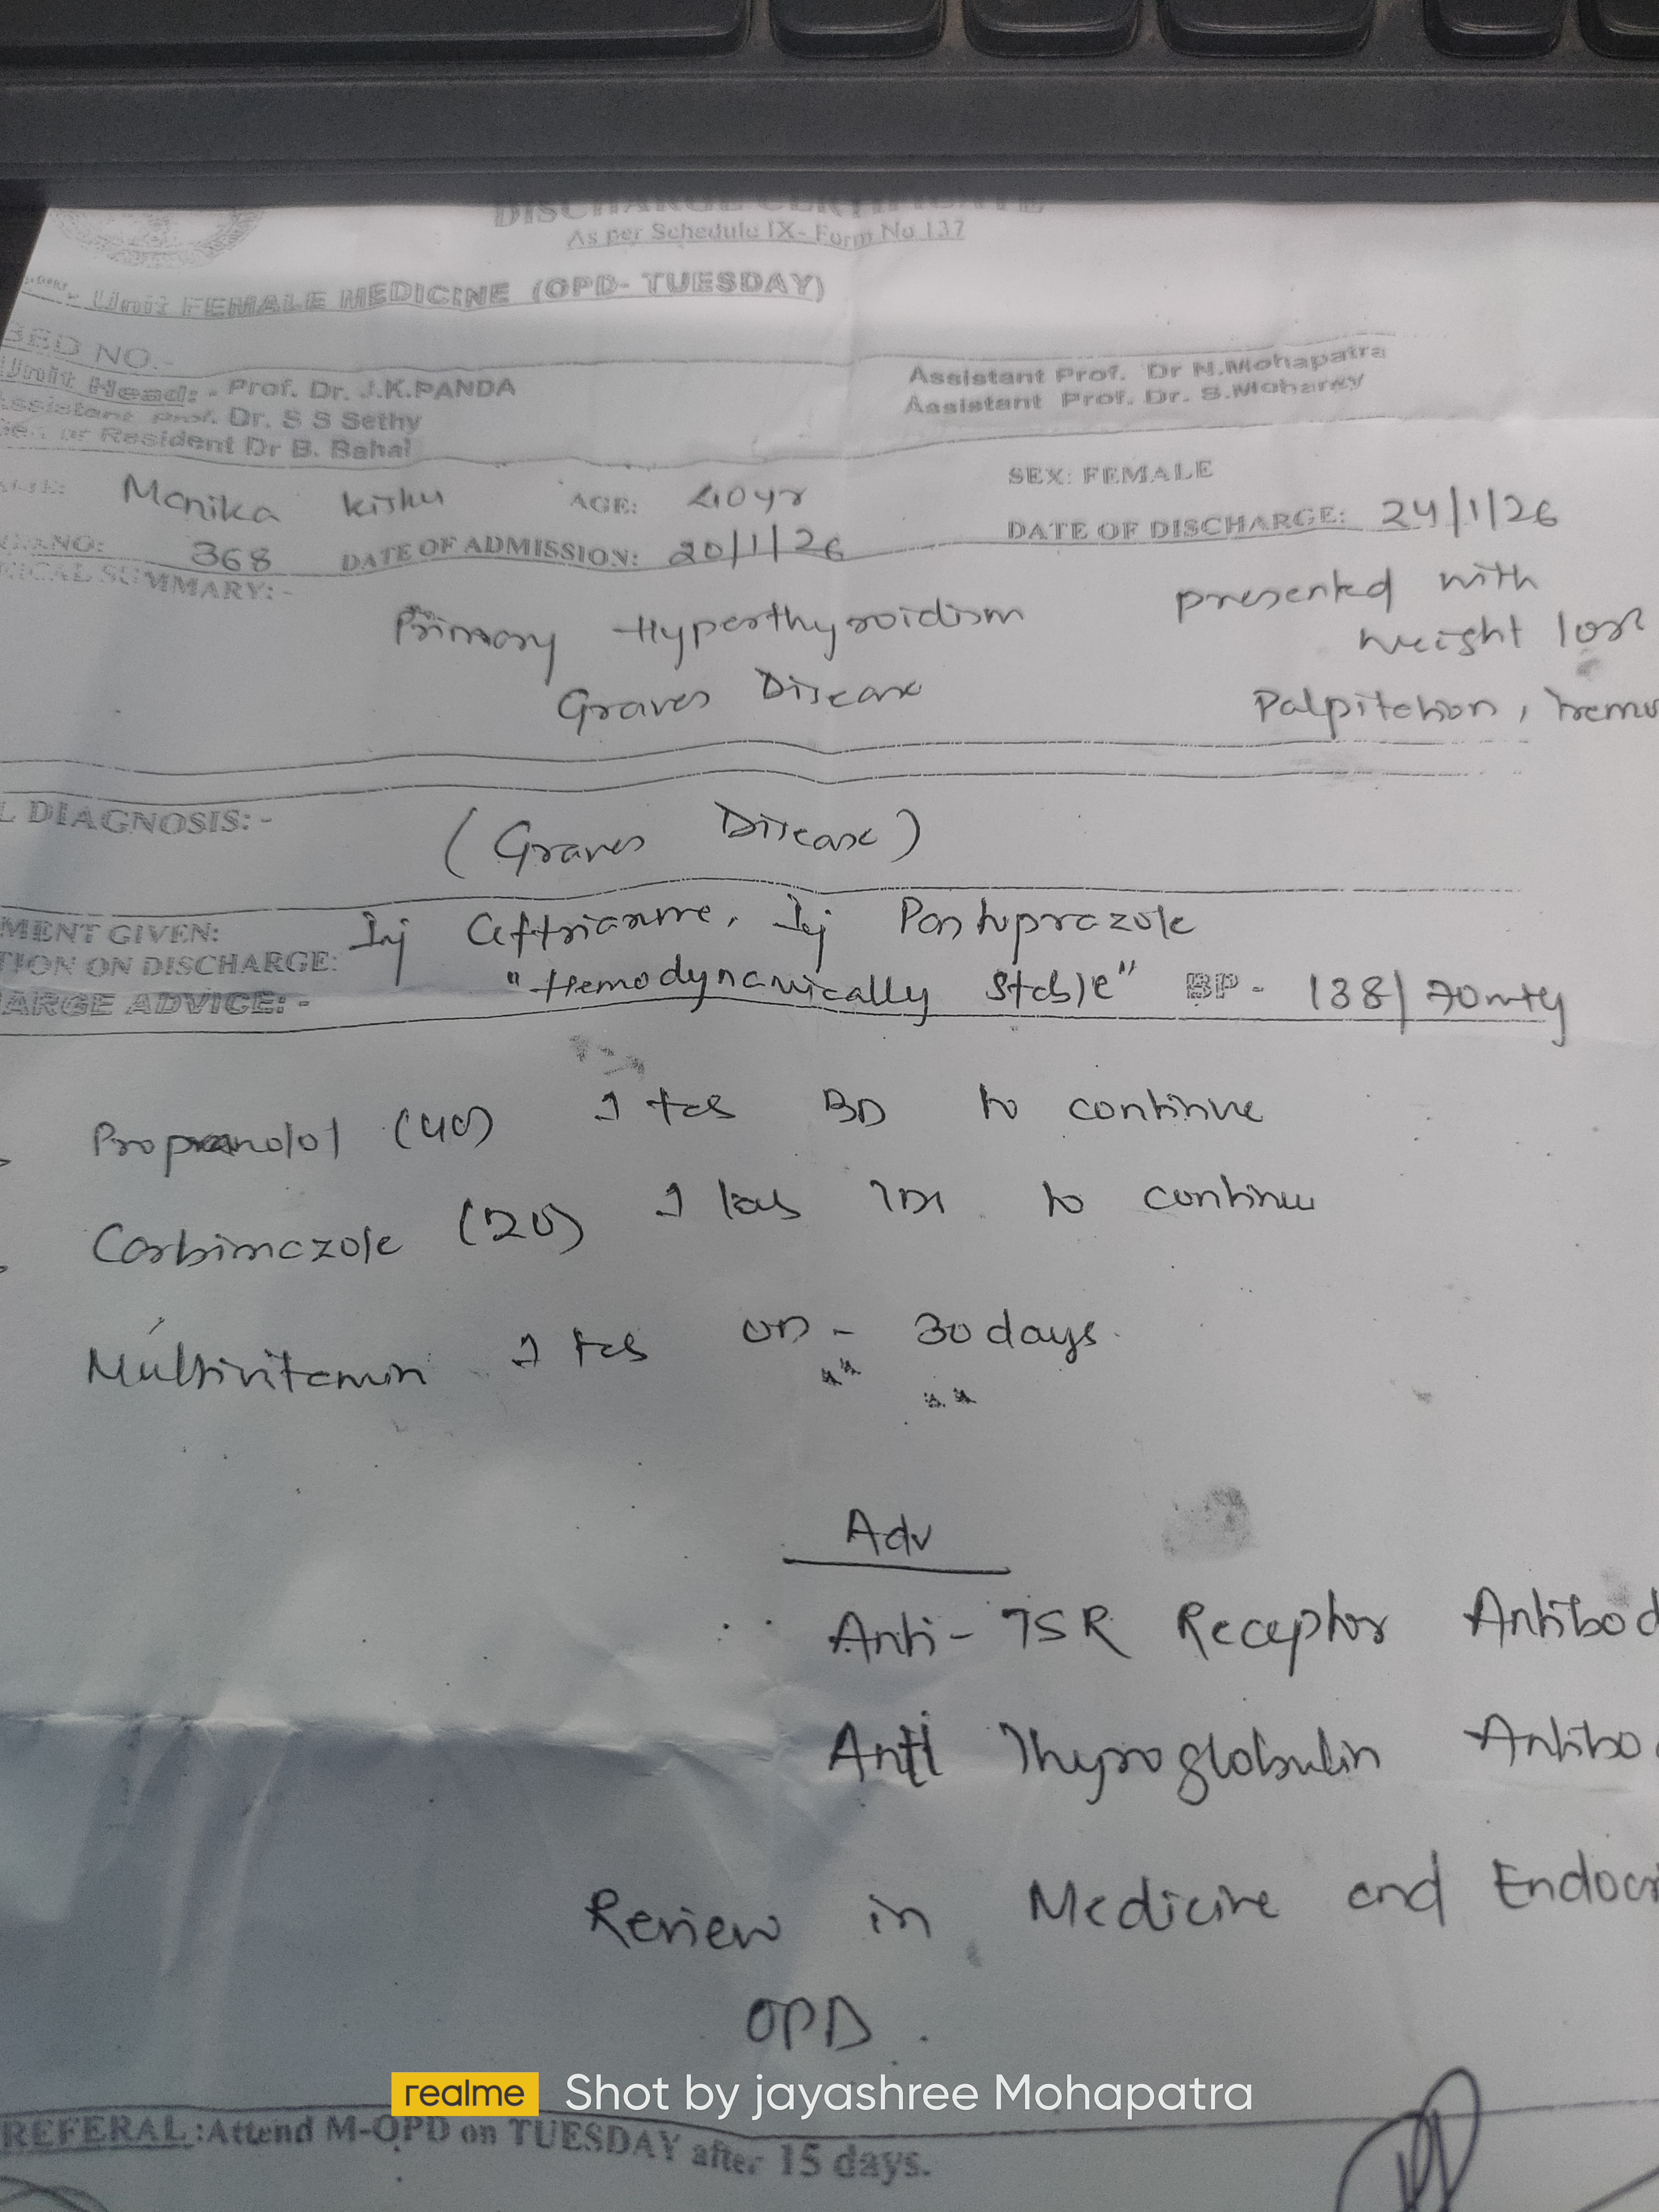 DISCHARGE CERTIFICATE
As per Schedule IX- Form No 137
Unit FEMALE MEDICINE (OPD- TUESDAY)
BED NO.-
Unit Head: - Prof. Dr. J.K.PANDA
Assistant Prof. Dr N.Mohapatra
Assistant Prof. Dr. S S Sethy
Assistant Prof. Dr. S.Moharay
or Resident Dr B. Bahal
Monika kisku AGE: 40yr SEX: FEMALE
NO: 368 DATE OF ADMISSION: 20/1/26 DATE OF DISCHARGE: 24/1/26
ICAL SUMMARY:-
Primary Hyperthyroidism presented with
weight loss
Graves Disease Palpitation, tremo
L DIAGNOSIS:- (Graves Disease)
MENT GIVEN: Inj Ceftriaxone, Inj Pantoprazole
TION ON DISCHARGE: "Hemodynamically Stable" BP- 138/70mmHg
ARGE ADVICE:-
Propranolol (40) 1 tab BD to continue
Carbimazole (20) 1 tab TDS to continue
Multivitamin 1 tab OD - 30 days.
Adv
Anti-TSR Receptor Antibod
Anti Thyroglobulin Antibo
Review in Medicine and Endocri
OPD.
realme Shot by jayashree Mohapatra
REFERAL:Attend M-OPD on TUESDAY after 15 days.